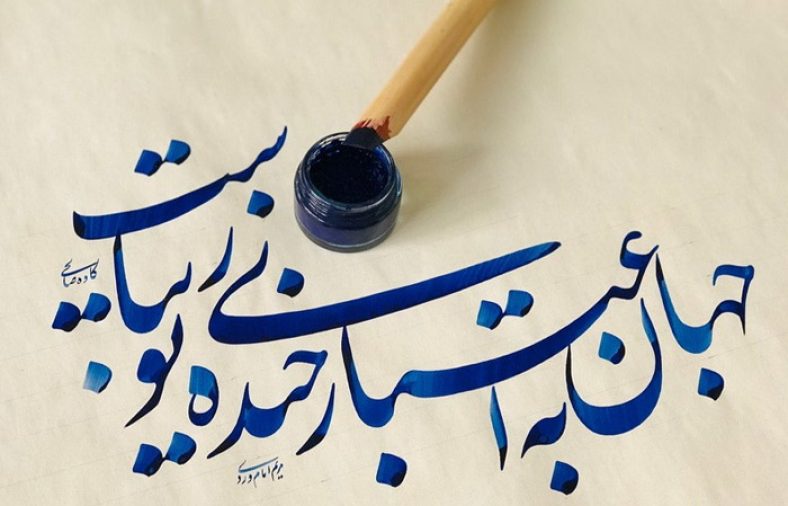 جهان به اعتبار خنده ی تو زیباست
کاوه صالحی
مریم امام وردی